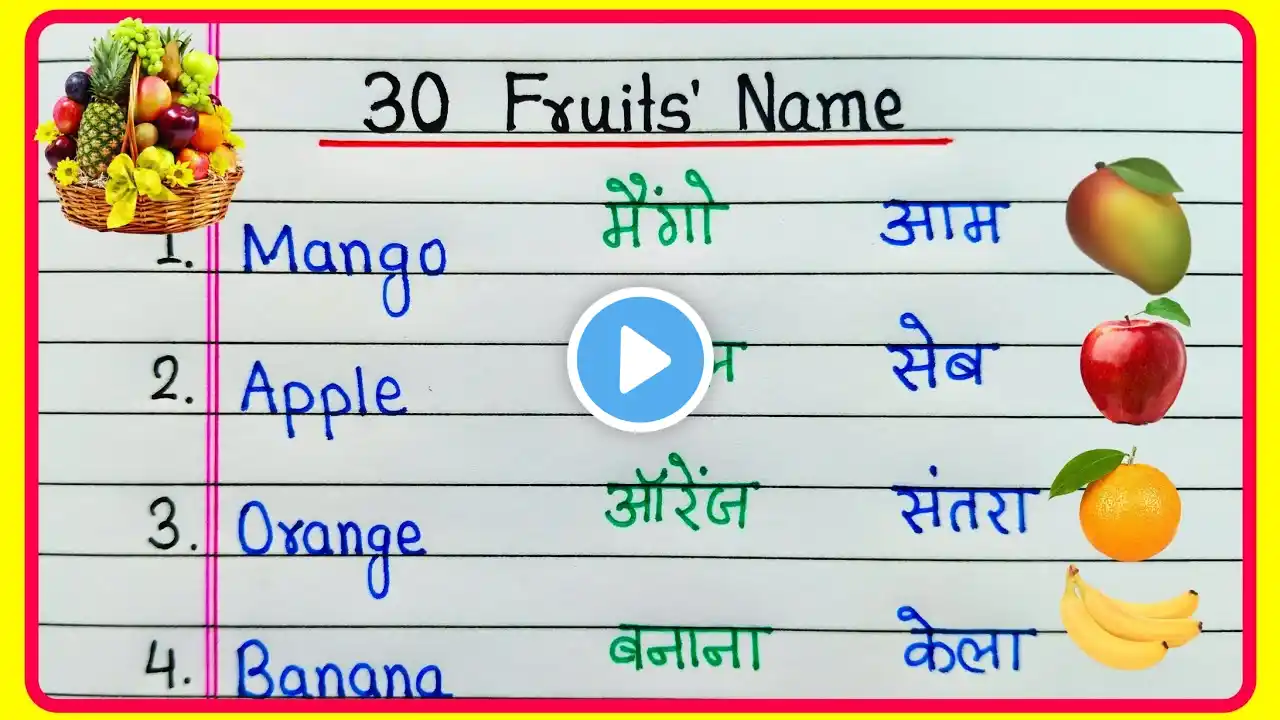 30 Fruits' Name
1. Mango मैंगो आम
2. Apple सेब
3. Orange ऑरेंज संतरा
4. Banana बनाना केला